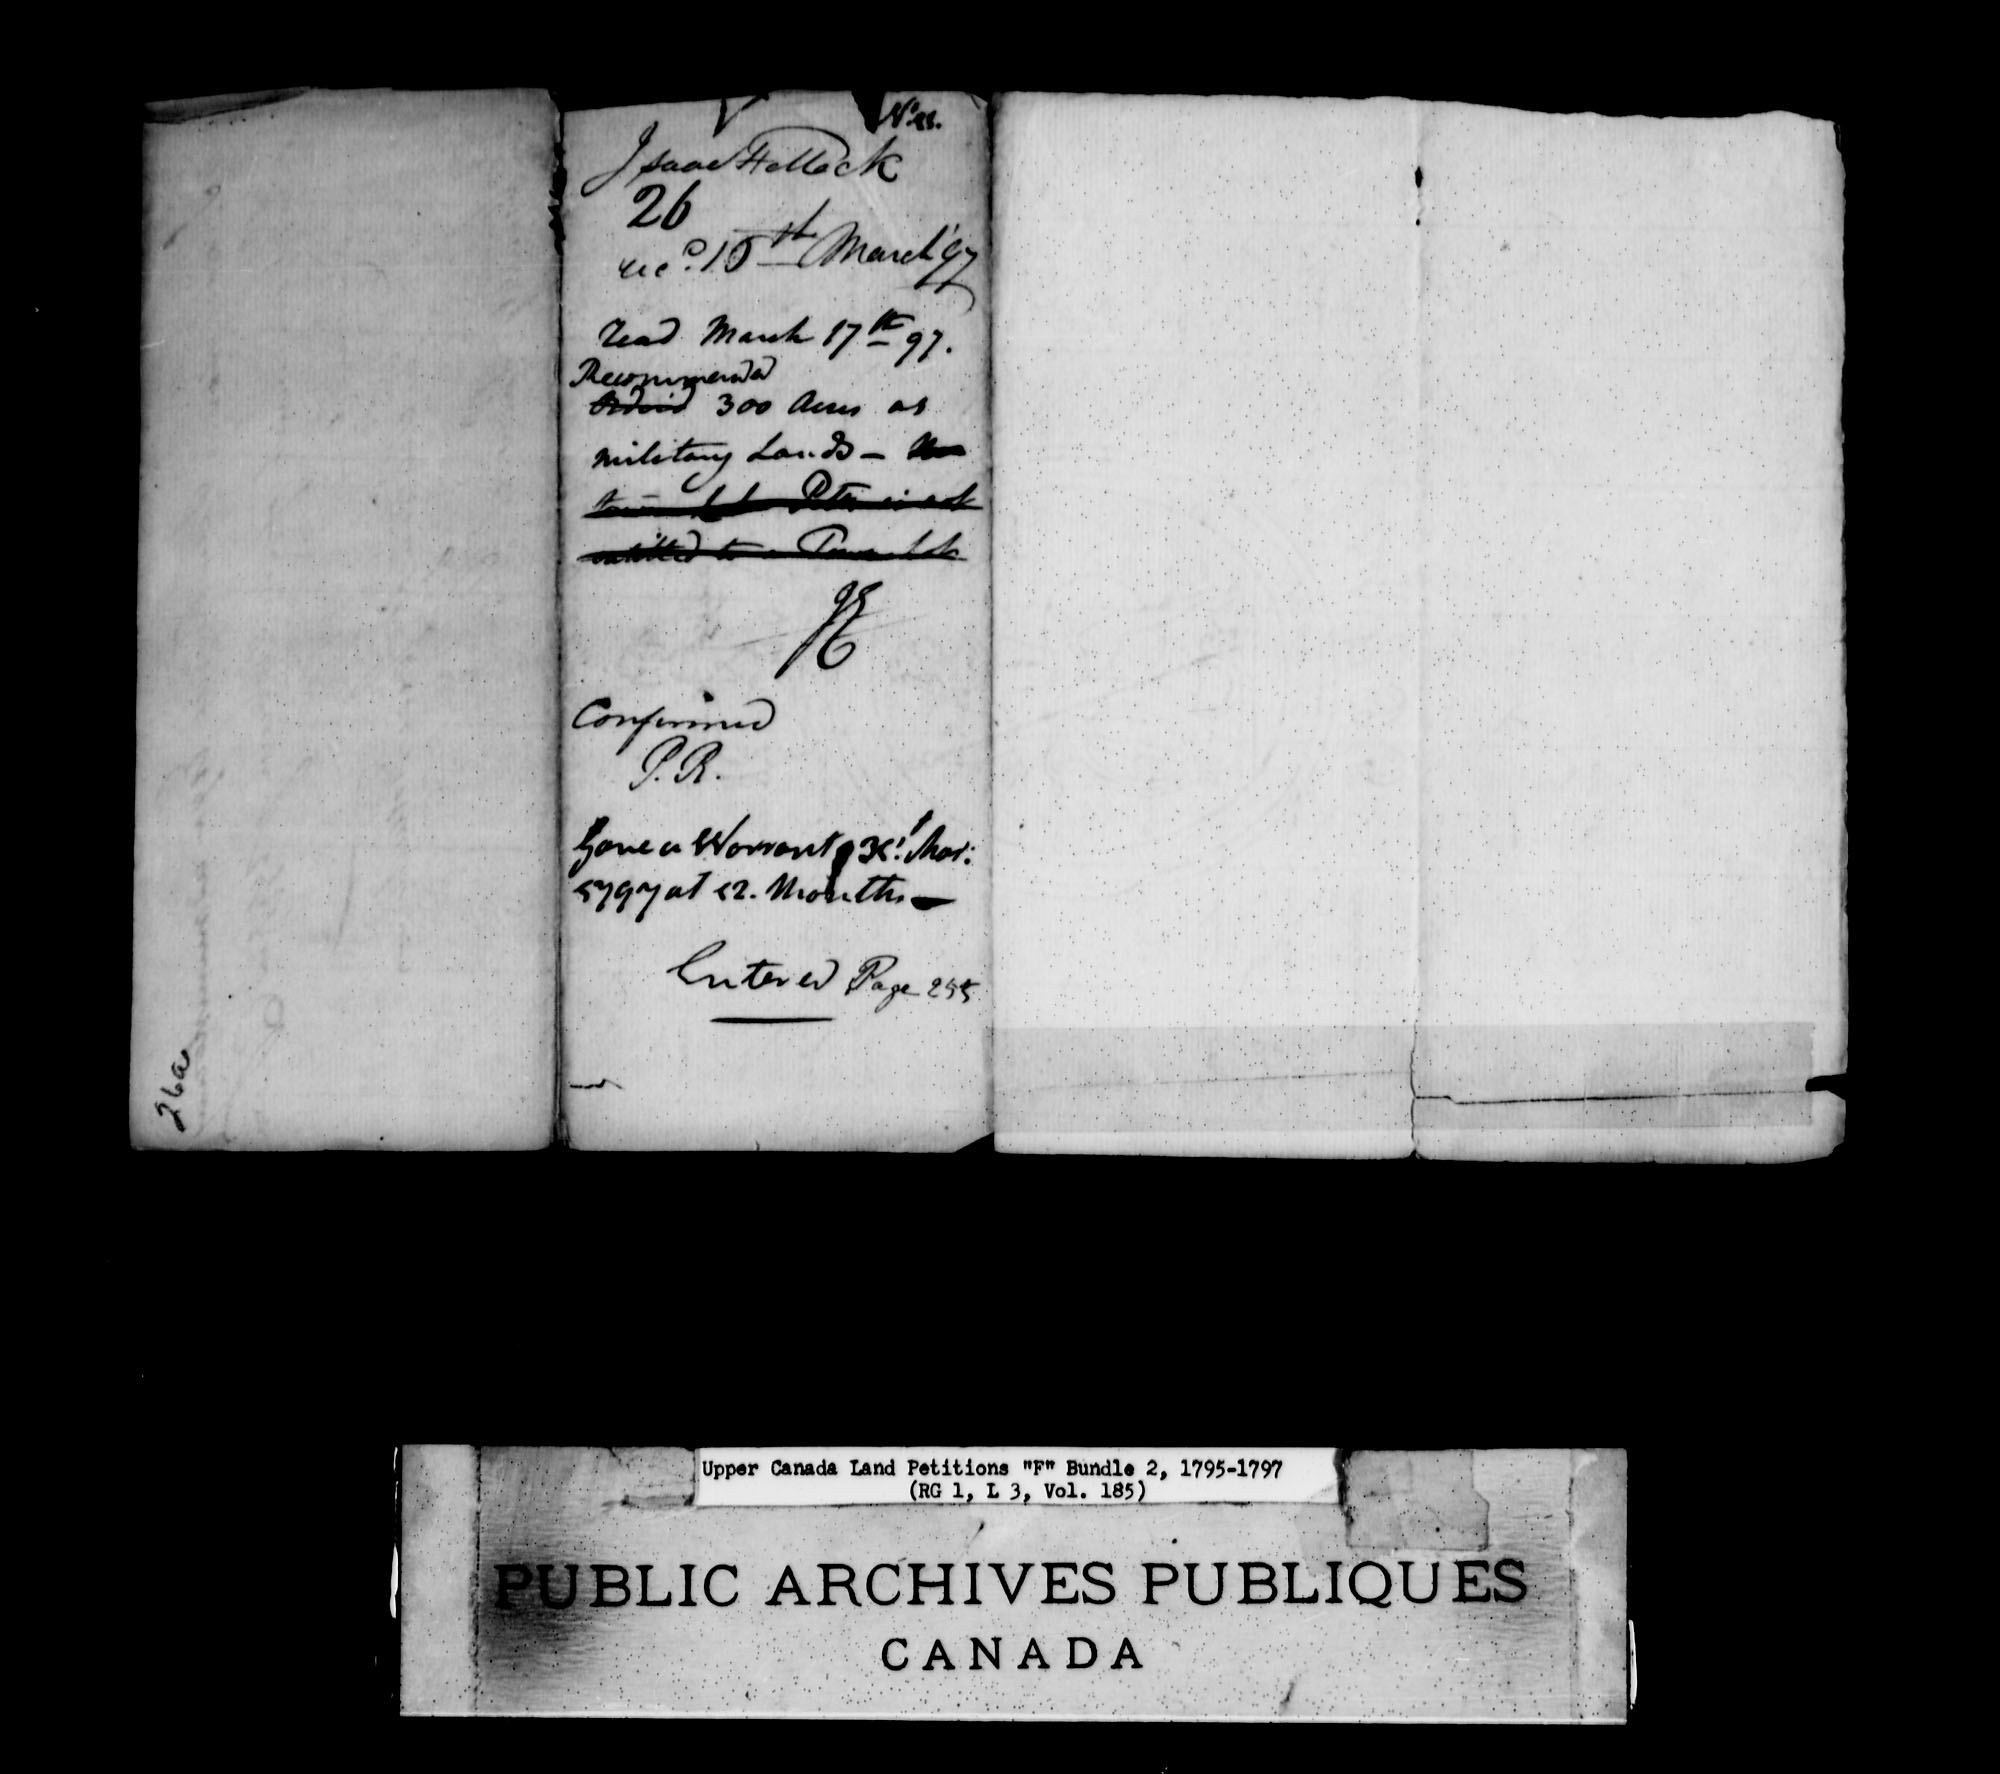 Isaac Fellock
26
rec.d 15th March '97
read March 17th 97.
Recommended
Ordered 300 Acres as
military Lands - No
town lot Petr is not
entitled to a Town lot
Confirmed
P.R.
Gave a Warrant 31st Mar:
1797 at 12. Months
Entered Page 255
26a
Upper Canada Land Petitions "F" Bundle 2, 1795-1797
(RG 1, L 3, Vol. 185)
PUBLIC ARCHIVES PUBLIQUES
CANADA